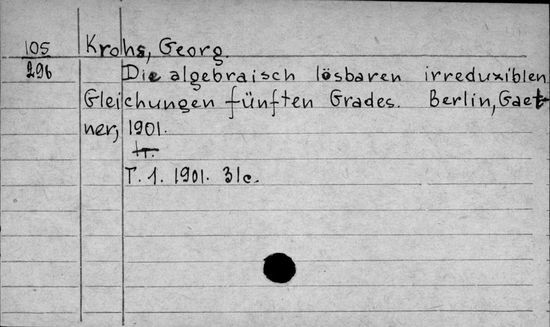 105 Krohs, Georg.
296 Die algebraisch lösbaren irreduxiblen
Gleichungen fünften Grades. Berlin, Gaet-
ner, 1901.
T. 1. 1901. 31c.